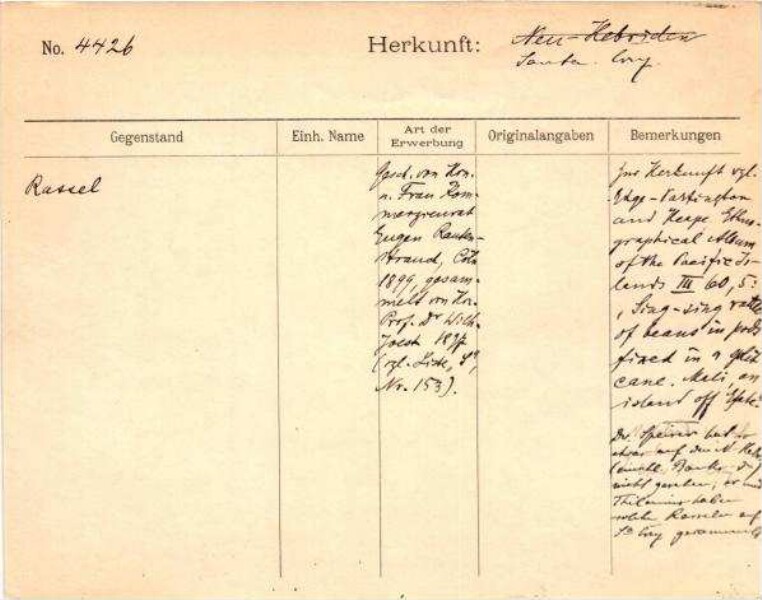 No. 4426
Herkunft:
Neu-Hebriden
Santa Cruz.
Gegenstand
Einh. Name
Art der
Erwerbung
Originalangaben
Bemerkungen
Rassel
Gesch. von Hrn.
u. Frau Kom-
merzienrat
Eugen Rauten-
strauch, Cöln
1899, gesam-
melt von Hrn.
Prof. Dr Wilh.
Joest 1897
(vgl. Liste,
Nr. 153).
Zur Herkunft vgl.
Edge-Partington
and Heape Ethno-
graphical Album
of the Pacific Is-
lands III 60, 5:
, Sing-sing rattle
of beans in pods
fixed in a split
cane. Meli, an
island off Efate.
Dr. Speiser hat so
etwas auf den N. Hebr.
(einschl. Banks)
nicht gesehen; er und
Thilenius haben
solche Rasseln auf
Sta Cruz gesammelt